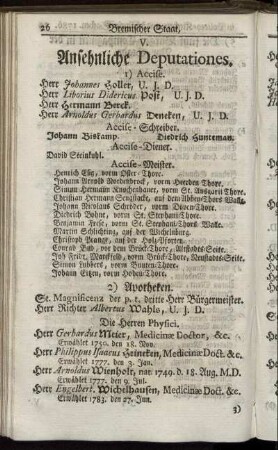 26 Bremischer Staat.
V.
Ansehnliche Deputationes.
1) Accise.
Herr Johannes Holler, U. J. D.
Herr Liborius Didericus Post, U. J. D.
Herr Hermann Berck.
Herr Arnoldus Gerhardus Deneken, U. J. D.
Accise-Schreiber.
Johann Biskamp. Diedrich Hunteman.
Accise-Diener.
David Steinkuhl.
Accise-Meister.
Henrich vorm Oster-Thore.
Johann Arnold vorm Heerden Thore.
Simon Hermann vorm St. Ansgarii Thore.
Christian Hermann auf dem Abben-Thors Walle.
Johann Nicolaus Schröder, vorm Doven-Thore.
Diederich Bohne, vorm St. Stephani Thore.
Benjamin vorm St. Stephani-Thors Walle.
Martin auf der Wichelnburg.
Christoph Prange, auf der Holz-Pforten.
Conrad vor der Brück-Thore, Altstadts-Seite.
Joh. vorm Brück-Thore, Neustadts-Seite.
Simon Lübbers, vorm Bunten-Thore.
Johann vorm Hohen-Thore.
2) Apotheken.
Se. Magnificenz der p. t. dritte Herr Bürgermeister.
Herr Richter Albertus Wahls, U. J. D.
Die Herren Physici.
Herr Gerhardus Meier, Medicinæ Doctor, &c.
Erwählt 1750. den 18. Nov.
Herr Philippus Isaacus Heineken, Medicinæ Doct. &c.
Erwählt 1777. den 3. Jan.
Herr Arnoldus Wienholt, nat. 1749. d. 18. Aug. M.D.
Erwählt 1777. den 9. Jul.
Herr Engelbert Wichelhausen, Medicinæ Doct. &c.
Erwählt 1783. den 27. Jun.
3)